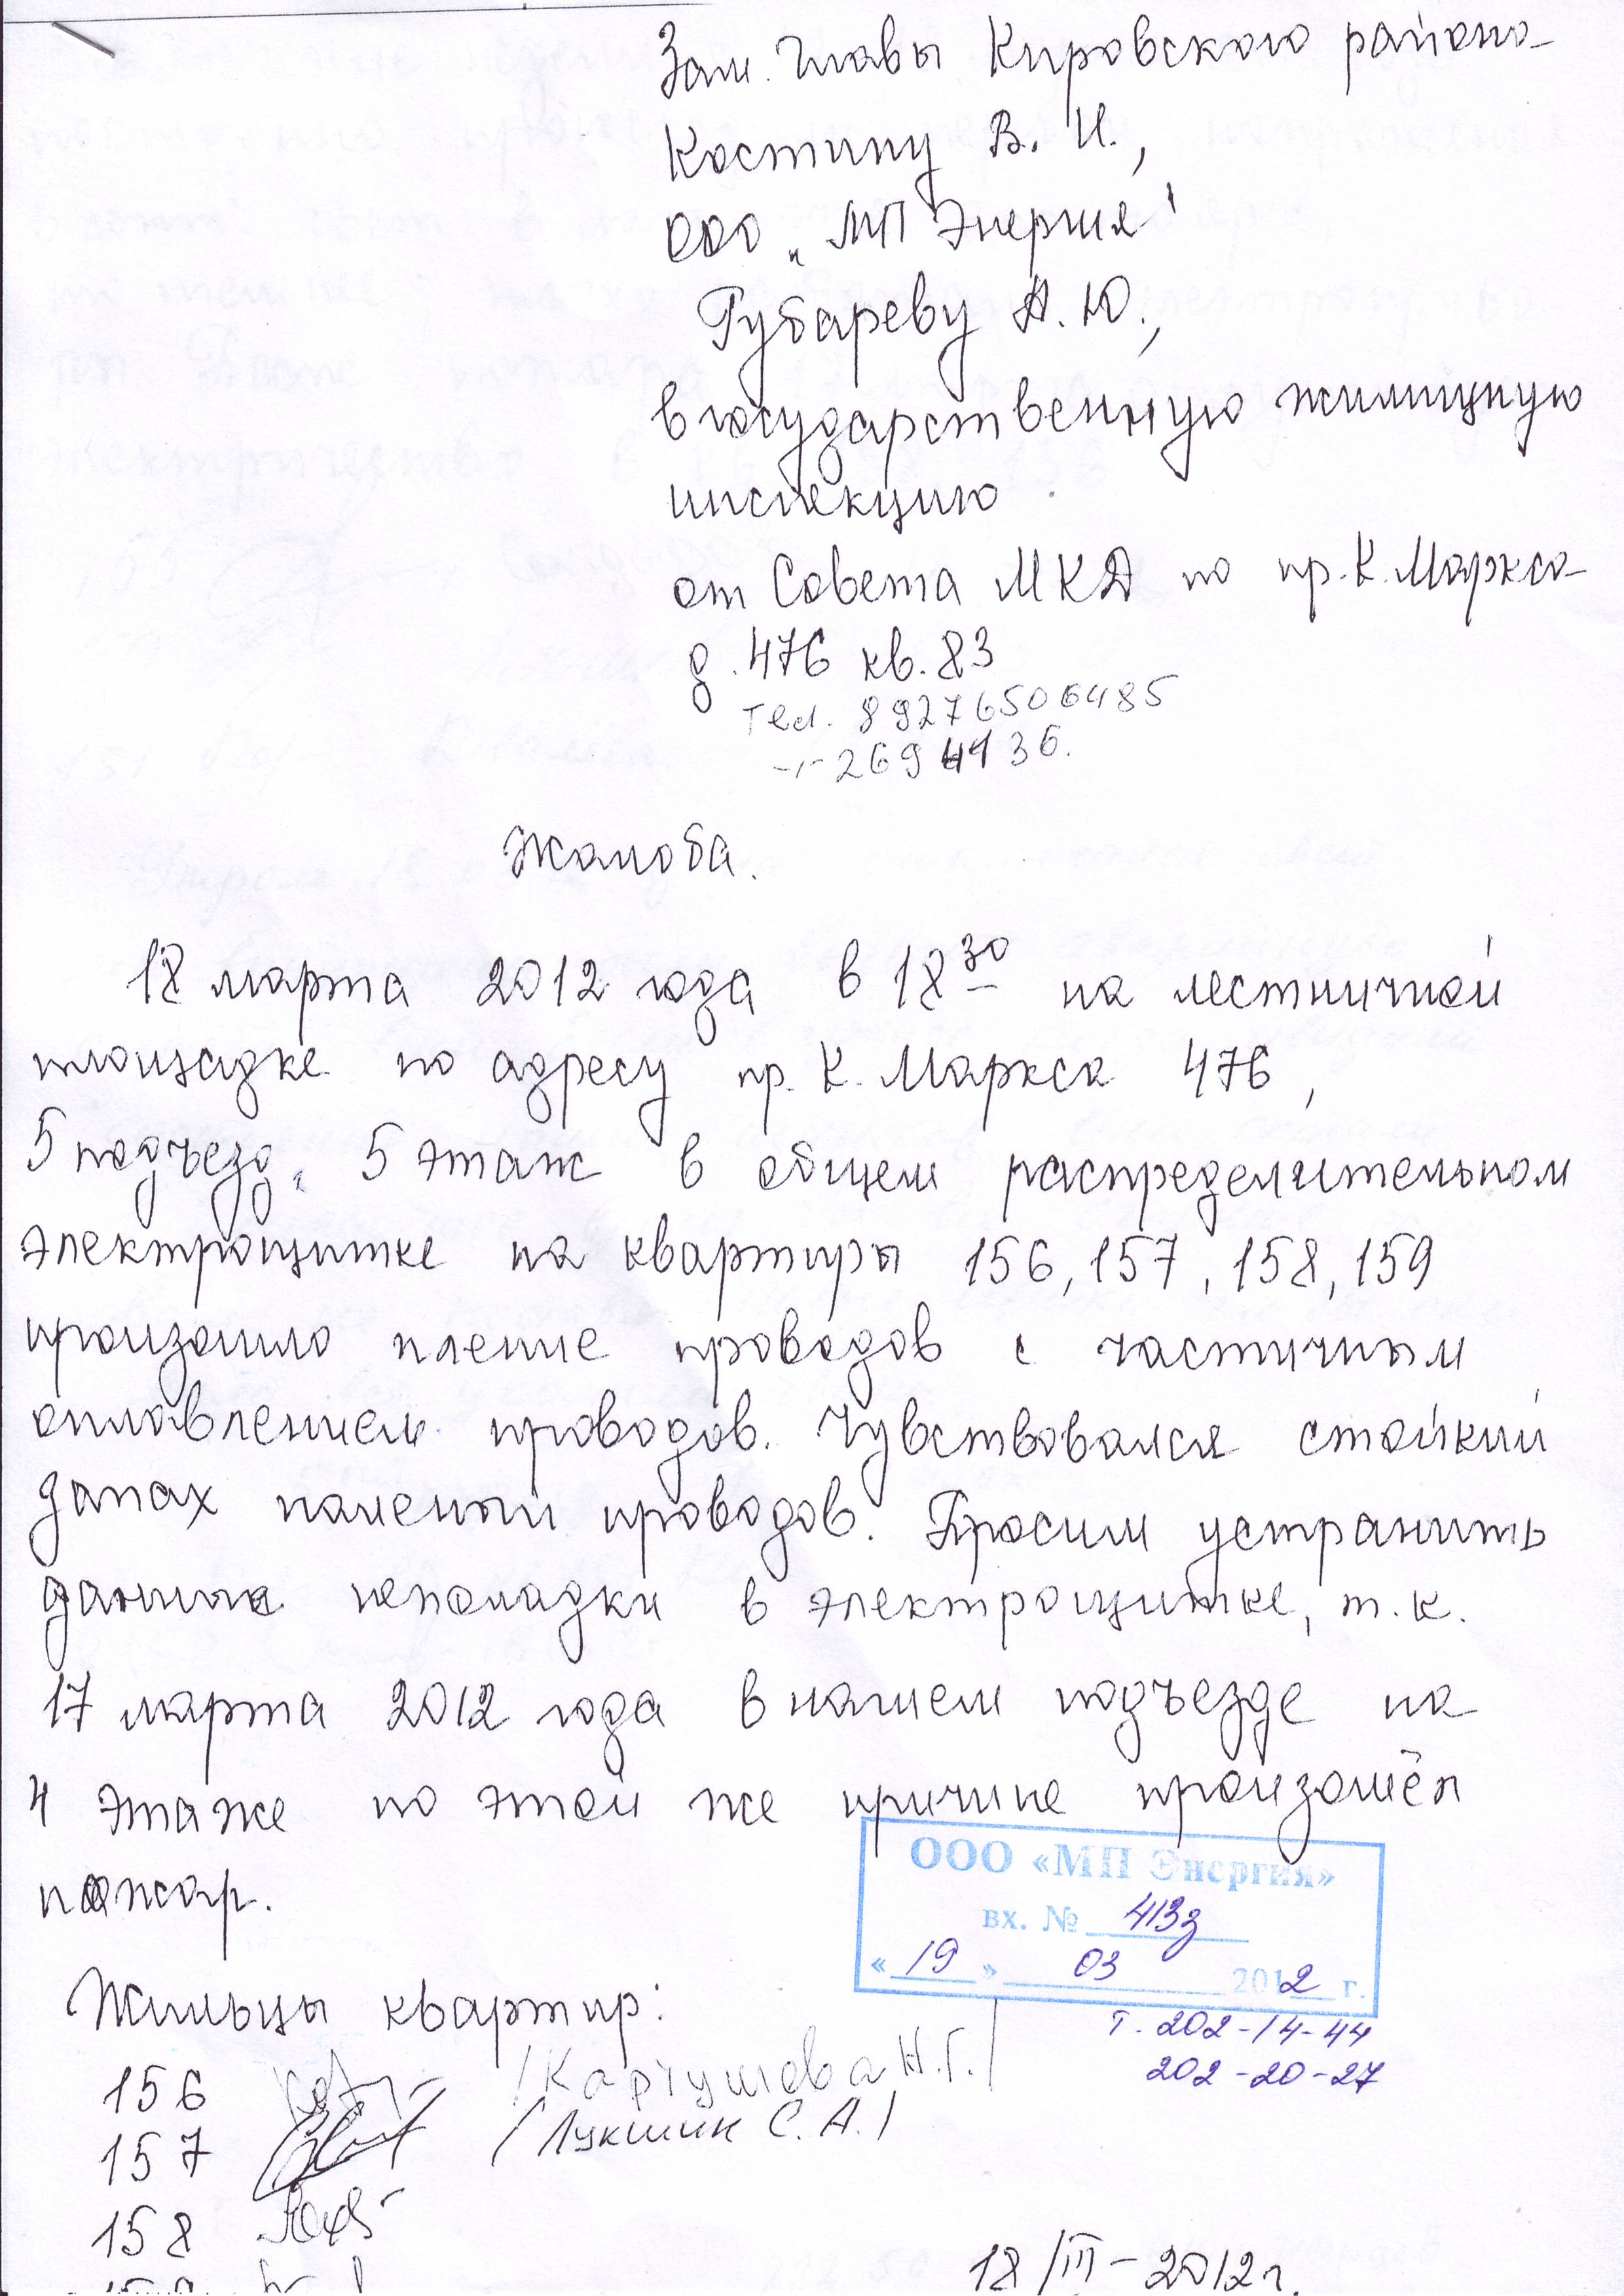 Зам. Главы Кировского района
Костину В. И.,
ООО „МП Энергия"
Губареву А. Ю.,
в государственную жилищную
инспекцию
от Совета МКД по пр. К. Маркса
д. 476 кв. 83
тел. 89276506485
-"- 2694136.
Жалоба.
18 марта 2012 года в 18 30 на лестничной
площадке по адресу пр. К. Маркса 476,
5 подъезд, 5 этаж в общем распределительном
электрощитке на квартиры 156, 157, 158, 159
произошло тление проводов с частичным
оплавлением проводов. Чувствовался стойкий
запах паленый проводов. Просим устранить
данные неполадки в электрощитке, т.к.
17 марта 2012 года в нашем подъезде на
4 этаже по этой же причине произошёл
пожар.
ООО «МП Энергия»
вх. № 413з
« 19 » 03 2012 г.
т. 202-14-44
202-20-27
Жильцы квартир:
156 /Картушова Н.Г./
157 /Лукшин С. А./
158
159
18/III-2012г.